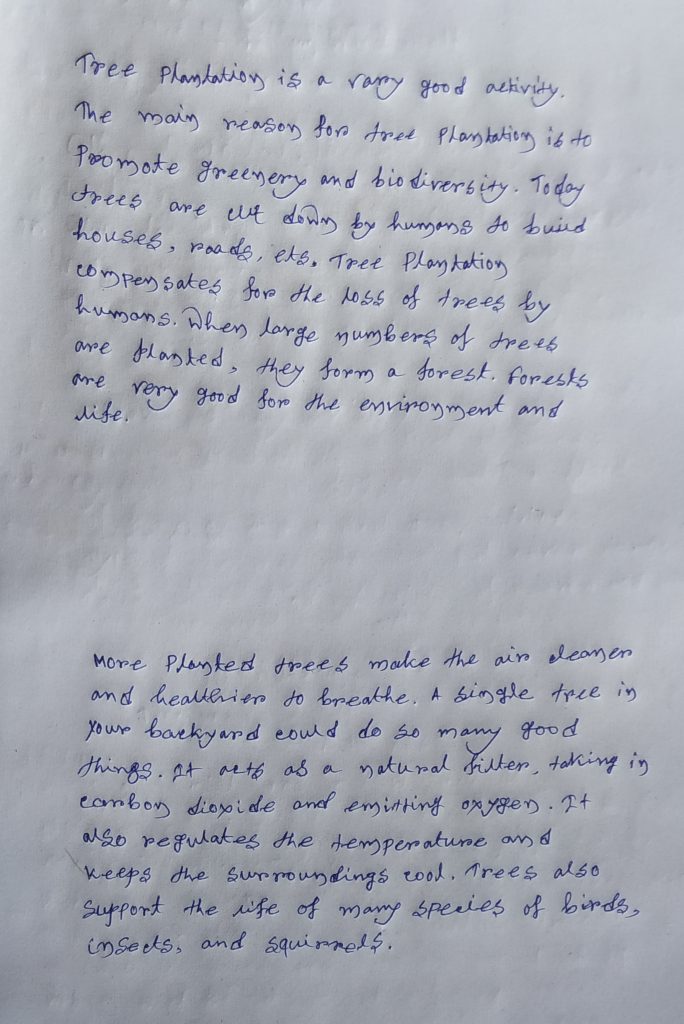 Tree Plantation is a vary good activity.
The main reason for tree Plantation is to
Promote greenery and biodiversity. Today
trees are cut down by humans to build
houses, roads, ets, Tree Plantation
compensates for the loss of trees by
humans. When large numbers of trees
are planted, they form a forest. Forests
are very good for the environment and
life.
More Planted trees make the air cleaner
and healthier to breathe. A single tree in
Your backyard could do so many good
things. It acts as a natural filter, taking in
carbon dioxide and emitting oxygen. It
also regulates the temperature and
keeps the surroundings cool. Trees also
Support the life of many species of birds,
insects, and squirrels.